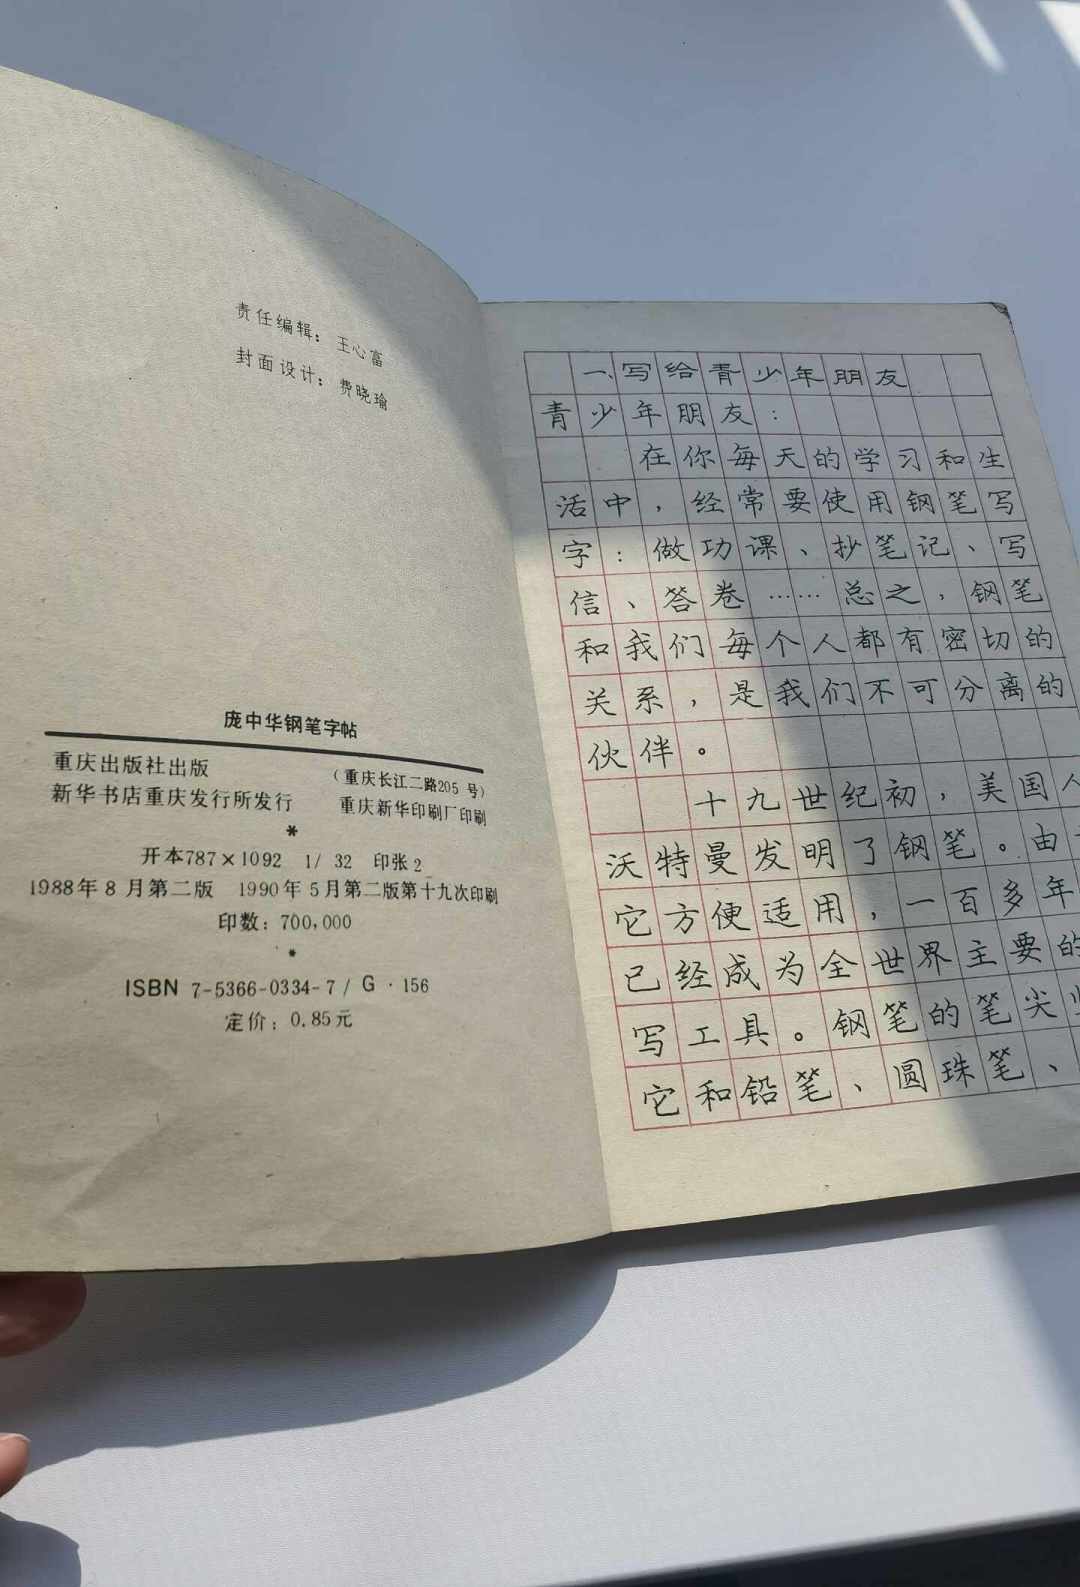 责任编辑：王心富
封面设计：费晓瑜
庞中华钢笔字帖
重庆出版社出版 （重庆长江二路205 号）
新华书店重庆发行所发行 重庆新华印刷厂印刷
*
开本787×1092 1/ 32 印张 2
1988年 8 月第二版 1990年 5月第二版第十九次印刷
印数：700,000
*
ISBN 7-5366-0334-7 / G · 156
定价：0.85元
一、写给青少年朋友
青少年朋友：
在你每天的学习和生
活中，经常要使用钢笔写
字：做功课、抄笔记、写
信、答卷……总之，钢笔
和我们每个人都有密切的
关系，是我们不可分离的
伙伴。
十九世纪初，美国人
沃特曼发明了钢笔。由
它方便适用，一百多年
已经成为全世界主要的
写工具。钢笔的笔尖
它和铅笔、圆珠笔、